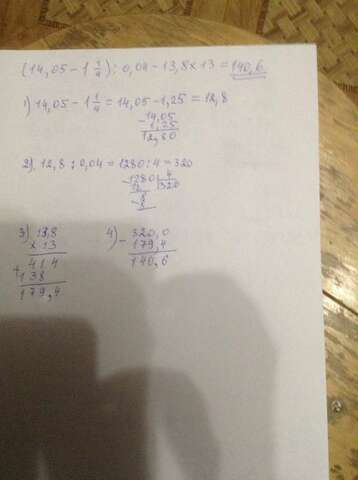 (14,05 - 1 1/4) : 0,04 - 13,8 x 13 = 140,6
1) 14,05 - 1 1/4 = 14,05 - 1,25 = 12,8
- 14,05
1,25
12,80
2) 12,8 : 0,04 = 1280 : 4 = 320
- 1280 4
12 320
- 8
8
3) 13,8
x 13
414
+ 138
179,4
4) - 320,0
179,4
140,6